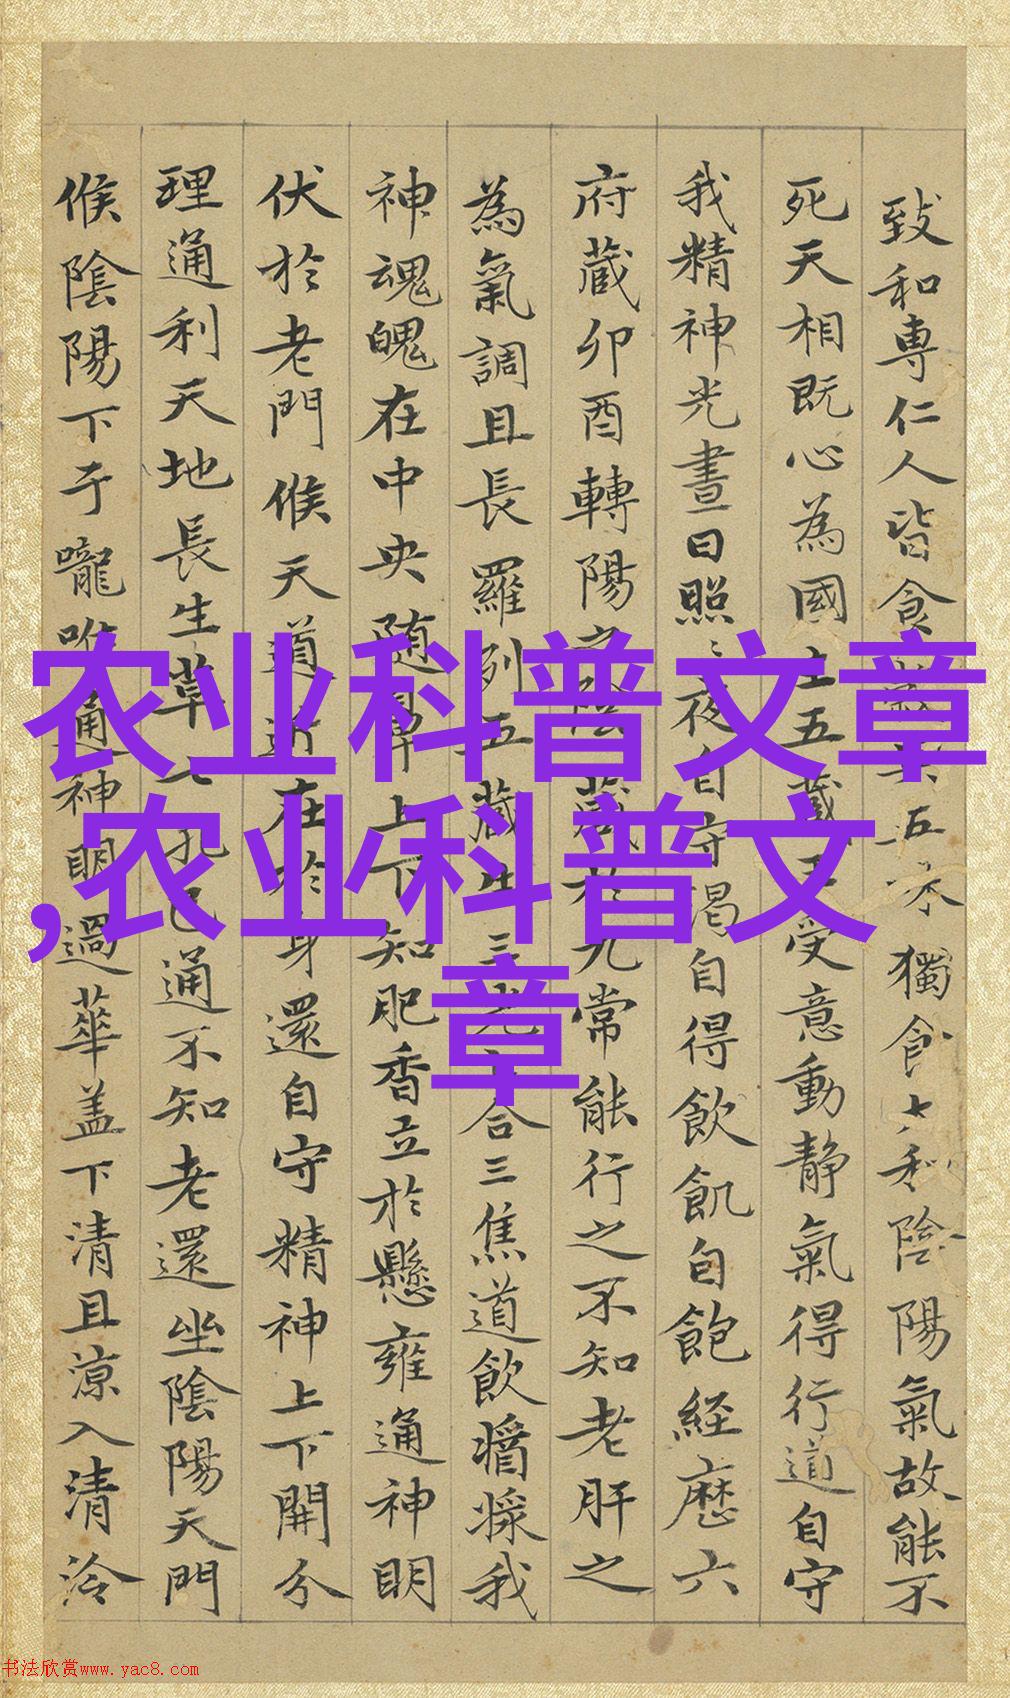 农业科普文章
,农业科普文
章
致和専仁人皆食五味獨食大和陰陽氣故能不
死天相既心為國主五藏王受意動静氣得行道自守
我精神光晝日照〻夜自守渴自得飲飢自飽経歷六
府藏卯酉轉陽之陰藏於九常能行之不知老肝之
為氣調且長羅列五藏生三光合三焦道飲醬漿我
神魂魄在中央随鼻上下知肥香立於懸雍通神明
伏於老門候天道近在於身還自守精神上下開分
理通利天地長生草七孔已通不知老還坐陰陽天門
候陰陽下于嚨喉通神明過華盖下清且涼入清泠
书法欣赏www.yac8.com